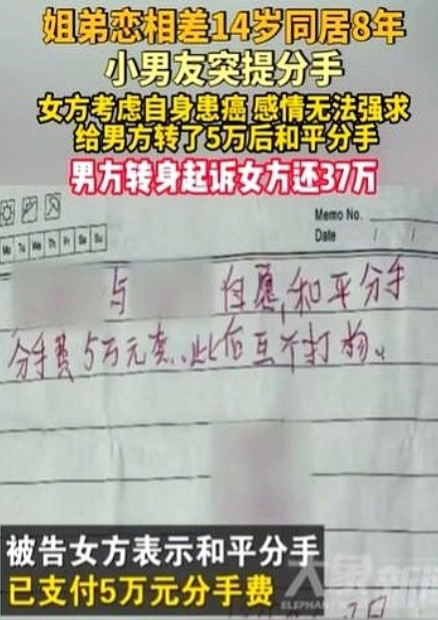 姐弟恋相差14岁同居8年
小男友突提分手
女方考虑自身患癌 感情无法强求
给男方转了5万后和平分手
男方转身起诉女方还37万
Memo No.
Mo Tu We Th Fr Sa Su
Date / /
与 自愿,和平分手
分手费5万元整、此后互不打扰。
被告女方表示和平分手
已支付5万元分手费
大象新闻
ELEPHANT